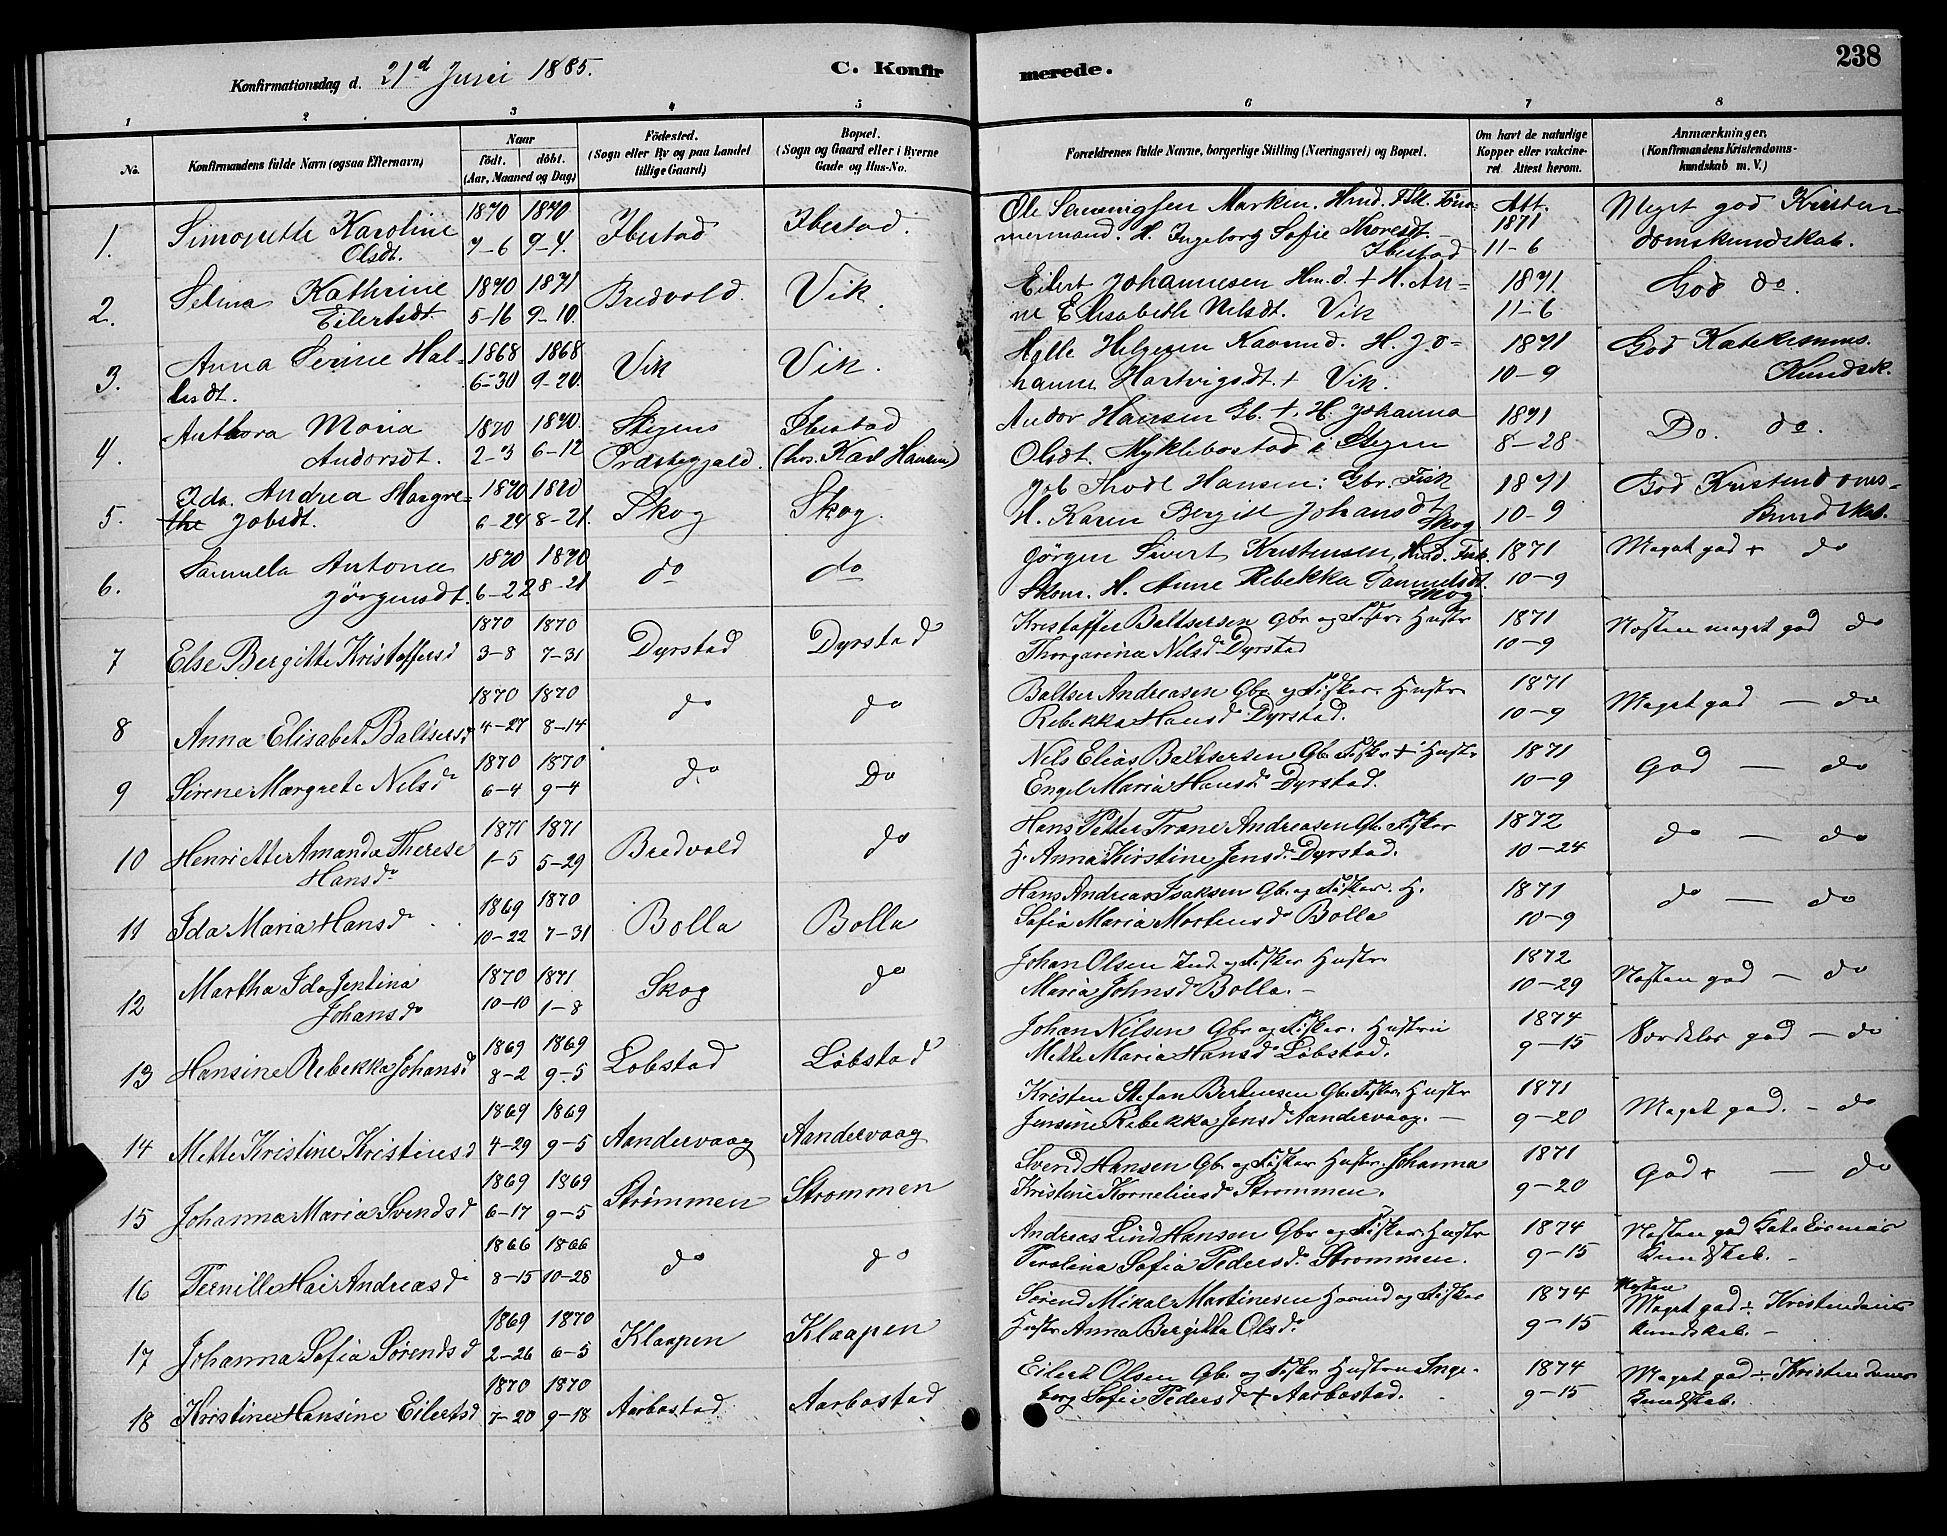 238
Konfirmationsdag d. 21d Juni 1885.
C. Konfirmerede.
1 2 3 4 5 6 7 8
No.
Konfirmandens fulde Navn (ogsaa Efternavn)
Naar
født. døbt.
(Aar, Maaned og Dag)
Födested.
(Sogn eller By og paa Landet
tillige Gaard)
Bopæl.
(Sogn og Gaard eller i Byerne
Gade og Hus-No.
Forældrenes fulde Navne, borgerlige Stilling (Næringsvei) og Bopæl.
Om havt de naturlige
Kopper eller vakcine-
ret Attest herom.
Anmærkninger,
(Konfirmandens Kristendoms-
kundskab m. V.)
1. Simonette Karoline Olsdt. 1870 7-6 1870 9-4. Ibestad Ibestad. Ole Marken. Hmd. Fsk. mermand. H. Ingeborg Sofie Thoresdt. Ibestad Att. 1871 11-6 Meget god Kristendomskundskab.
2. Selina Kathrine Eilertsdt. 1870 5-16 1871 9-10. Bredvold. Vik. Eilert Johannesen Hmd. + H. Anne Elisabeth Nilsdt. Vik 1871 11-6 God do.
3. Anna Serine Hallesdt. 1868 6-30 1868 9-20. Vik Vik. Halle Helgesen H. Johanne Hartvigsdt. + Vik. 1871 10-9 God Katekismus. Kundsk.
4. Anthora Maria Andorsdt. 1870 2-3 1870. 6-12 Stegens Præstegjæld. Ibestad (hos. Karl Hansen) Andor Hansen Gb. +. H. Johanna Olsdt. Myklebostad i Stegen 1871 8-28 Do. do.
5. Ida Andrea Margrethe Jobsdt. 1870 6-24 1870 8-21. Skog Skog. Job Hansen: Gbr. Fisk H. Karen Bergitt Johansdt. Skog 1871 10-9 God Kristendomskundskab.
6. Samuella Antona Jørgensdt. 1870 6-22 1870 8-21 do do Jørgen Sivert Kristensen, Hmd. Fisk. Skom. H. Anne Rebekka Samuelsdt. Skog 1871 10-9 Meget god + do
7 Else Bergitte Kristoffersd 1870 3-8 1870 7-31 Dyrstad Dyrstad Kristoffer Baltsersen Gbr og Fisk. Hustr Thorgarina Nilsd Dyrstad 1871 10-9 Nosten meget god do
8 Anna Elisabet Baltsersd 1870 4-27 1870 8-14 do do Baltser Andreasen Gbr og Fisker. Hustr Rebekka Hansd Dyrstad. 1871 10-9 Meget god — do
9 Sirene Margrete Nilsd 1870 6-4 1870 9-4 do Do Nils Elias Baltsersen Gb. Fisker + Hustr Engel Maria Hansd. Dyrstad. 1871 10-9 God — do
10 Henriette Amanda Therese Hansd 1871 1-5 1871 5-29 Bredvold do Hans Petter Trane Andreasen Gb. Fisker H. Anna Kirstine Jensd. Dyrstad. 1872 10-24 do — do
11 Ida Maria Hansd 1869 10-22 1870 7-31 Bolla Bolla Hans Andreas Isaksen Gb. og Fisker. H. Sofia Maria Mortensd Bolla 1871 10-9 do — do
12 Martha Ida Jentina Johansd 1870 10-10 1871 1-8 Skog do Johan Olsen Ind. og Fisker Hustr Maria Johnsd Bolla. — 1872 10-29 Nosten god — do
13 Hansine Rebekka Johansd 1869 8-2 1869 9-5 Løbstad Løbstad Johan Nilsen Gbr og Fisker. Hustru Mette Maria Hansd Løbstad. 1874 9-15 Særdeles god — do
14 Mette Kristine Kristensd 1869 4-29 1869 9-5 Aandervaag Aandervaag Kristen Stefan Berteusen Gb. Fisker Hustr Jensine Rebekka Jensd Aandervaag. — 1871 9-20 Meget god. — do
15 Johanna Maria Svendsd 1869 6-17 1869 9-5 Strømmen Strømmen Svend Hansen Gb. og Fisker Hustr. Johanna Kristine Korneliusd Strømmen. 1871 9-20 God + — do
16 Pernille Hai Andreasd 1866 8-15 1866 10-28 do do Andreas Lind Hansen Gbr og Fisker. Hustr Sofia Pedersd. Strømmen. 1874 9-15 Nosten god Katekismus Kundskab. —
17 Johanna Sofia Sørendsd 1869 2-26 1870 6-5 Klaapen Klaapen Sørend Mikal Martinesen Hmd og Fisker Hustr Anna Bergitta Olsd. 1874 9-15 Nosten Meget god ÷ Kristendoms kundskab. —
18 Kristine Hansine Eilertsd 1870 7-20 1870 9-18 Aarbostad Aarbostad Eilert Olsen Gb. og Fisker Hustru Ingeborg Sofie Pedersd + Aarbostad. 1874 9-15 Meget god ÷ Kristendoms Kundskab.